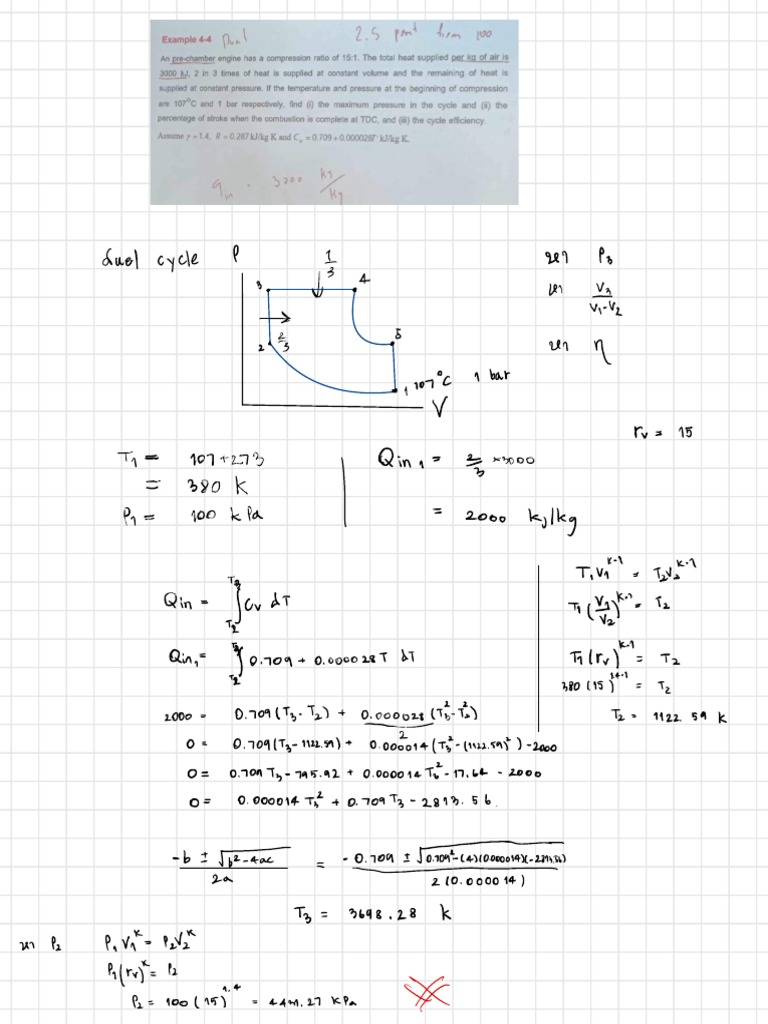 Example 4-4 Dual 2.5 point from 100
An pre-chamber engine has a compression ratio of 15:1. The total heat supplied per kg of air is
3000 kJ, 2 in 3 times of heat is supplied at constant volume and the remaining of heat is
supplied at constant pressure. If the temperature and pressure at the beginning of compression
are 107°C and 1 bar respectively, find (i) the maximum pressure in the cycle and (ii) the
percentage of stroke when the combustion is complete at TDC, and (iii) the cycle efficiency.
Assume γ = 1.4, R = 0.287 kJ/kg K and Cᵥ = 0.709 + 0.000028T kJ/kg K.
dual cycle P
1/3
3
4
2
2/3
5
1 107°C 1 bar
V
หา P₃
หา V₃/(V₁-V₂)
หา η
rᵥ = 15
T₁ = 107 + 273
= 380 K
P₁ = 100 kPa
Qin₁ = 2/3 × 3000
= 2000 kJ/kg
Qin = ∫ Cv dT
T₃
T₂
Qin₁ = ∫ 0.709 + 0.000028T dT
T₂
2000 = 0.709(T₃ - T₂) + 0.000028/2 (T₃² - T₂²)
0 = 0.709(T₃ - 1122.59) + 0.000014(T₃² - (1122.59)²) - 2000
0 = 0.709 T₃ - 795.92 + 0.000014 T₃² - 17.64 - 2000
0 = 0.000014 T₃² + 0.709 T₃ - 2813.56
T₁V₁^(k-1) = T₂V₂^(k-1)
T₁(V₁/V₂)^(k-1) = T₂
T₁(rᵥ)^(k-1) = T₂
380(15)^(1.4-1) = T₂
T₂ = 1122.59 K
(-b ± √(b² - 4ac))/2a = (-0.709 ± √(0.709² - (4)(0.000014)(-2813.56)))/2(0.000014)
T₃ = 3698.28 K
หา P₂ P₁V₁^k = P₂V₂^k
P₁(rᵥ)^k = P₂
P₂ = 100(15)^1.4 = 4431.27 kPa